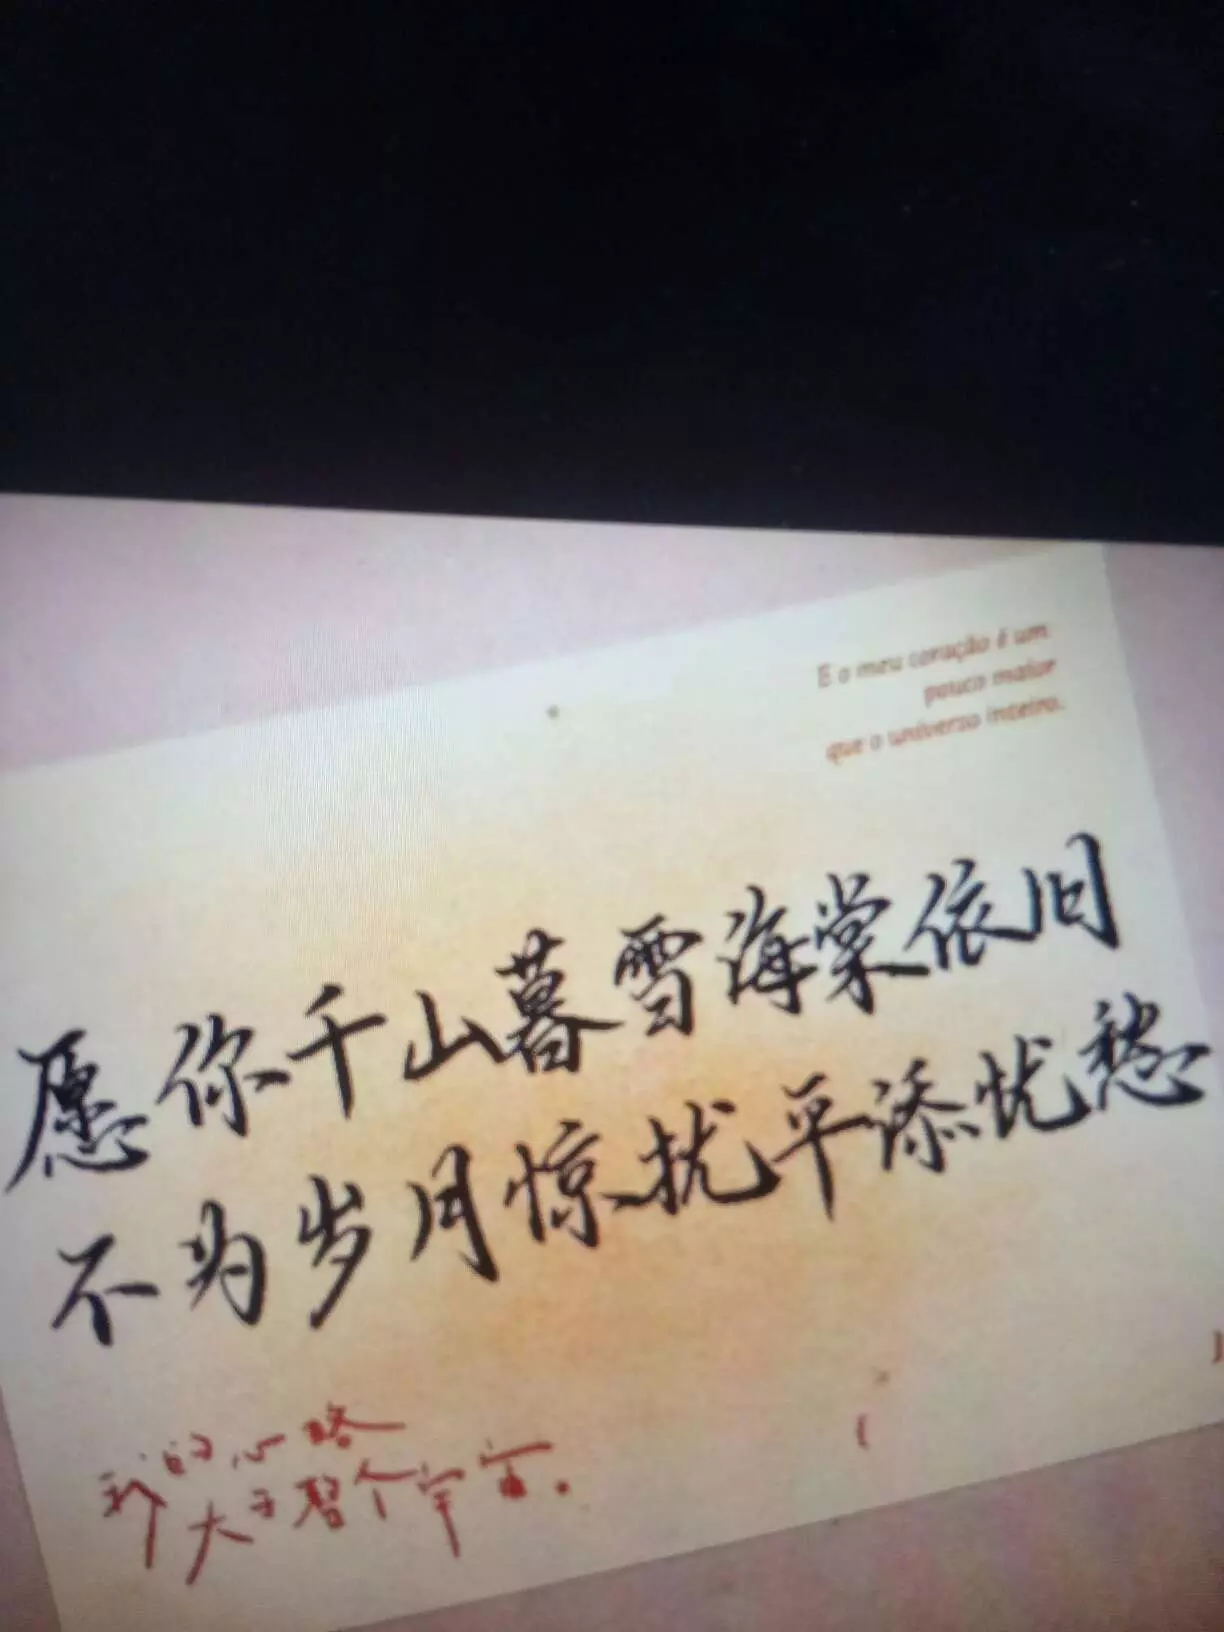 E o meu coração é um
pouco maior
que o universo inteiro.
愿你千山暮雪海棠依旧
不为岁月惊扰平添忧愁
我的心略
大于整个宇宙。